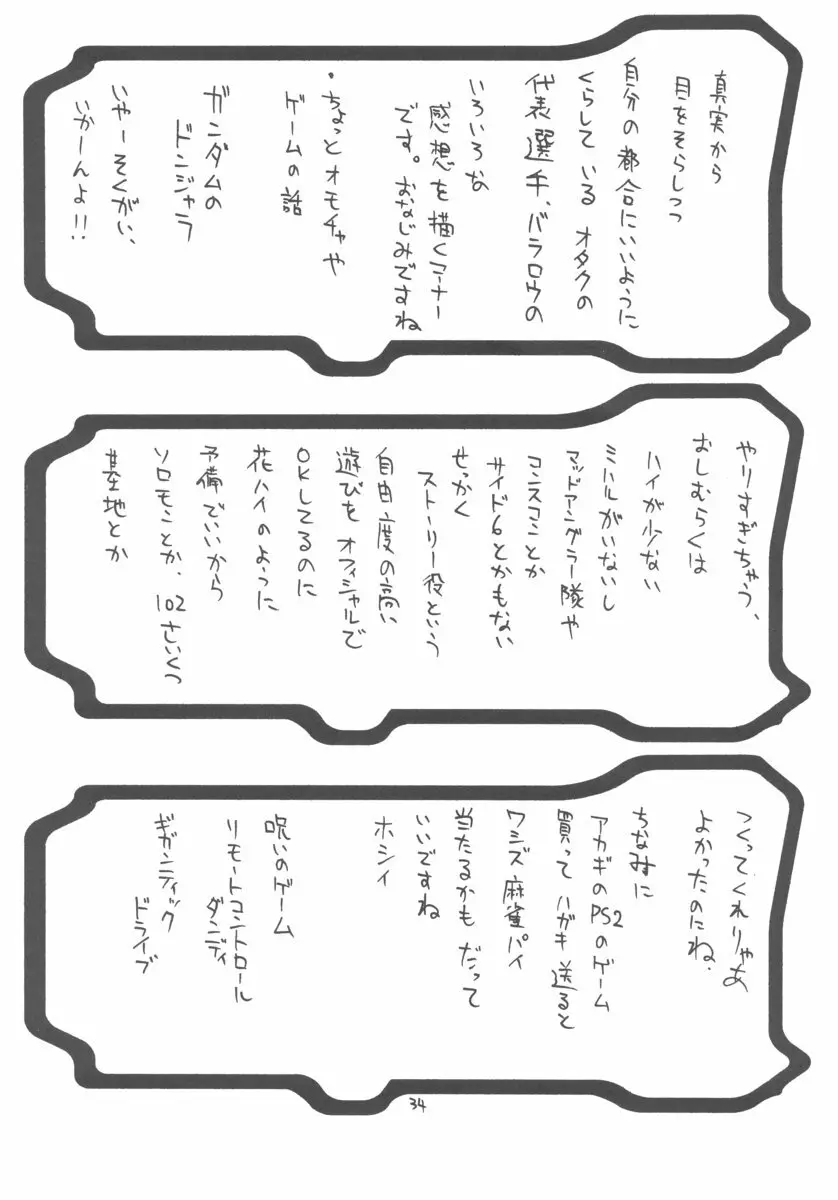 真実から
目をそらしつつ
自分の都合にいいように
くらしている オタクの
代表選手、バラロウの
いろいろな
感想を描くコーナー
です。おなじみですね
・ちょっとオモチャや
ゲームの話
ガンダムの
ドンジャラ
いやーそくがい、
いかーんよ!!
やりすぎちゃう、
おしむらくは
ハイが少ない
ミハルがいないし
マッドアングラー隊や
コンスコンとか
サイド6とかもない
せっかく
ストーリー役という
自由度の高い
遊びをオフィシャルで
OKしてるのに
花ハイのように
予備でいいから
ソロモンとか、102さいくつ
基地とか
つくってくれりゃあ
よかったのにね.
ちなみに
アカギのPS2のゲーム
買ってハガキ送ると
ワシズ麻雀パイ
当たるかも だって
いいですね
ホシイ
呪いのゲーム
リモートコントロール
ダンディ
ギガンティック
ドライブ
34